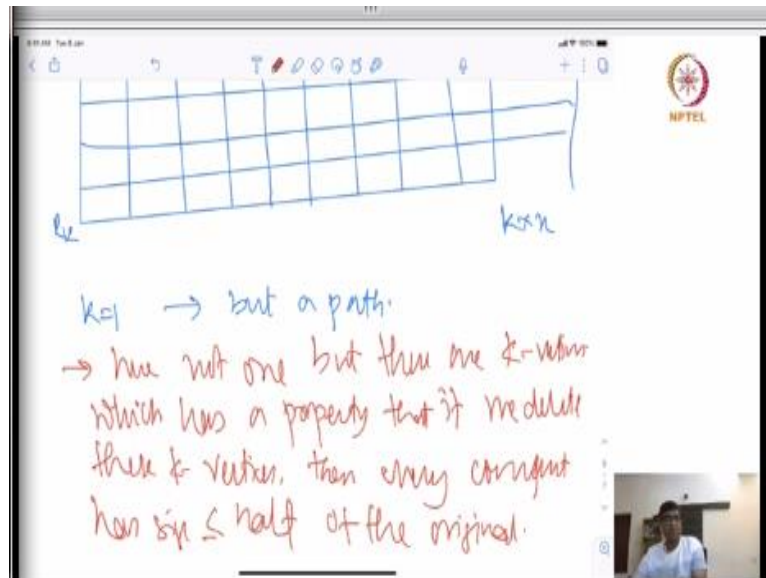 NPTEL
Rk
k×n
k=1 → but a path.
→ here not one but there are k-vertices
which has a property that if we delete
these k-vertices, then every component
has size ≤ half of the original.